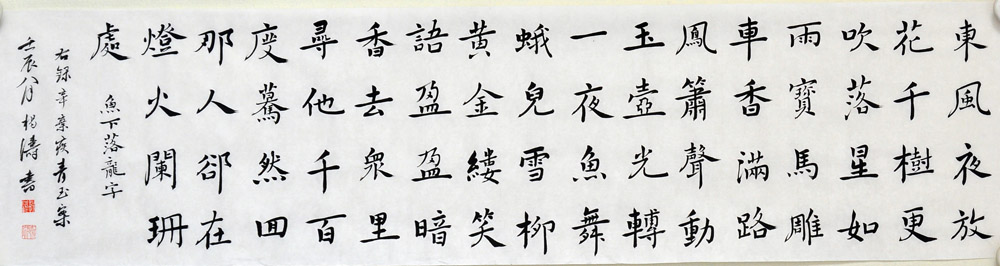 東風夜放
花千樹更
吹落星如
雨寶馬雕
車香滿路
鳳簫聲動
玉壺光轉
一夜魚舞
蛾兒雪柳
黃金縷笑
語盈盈暗
香去眾里
尋他千百
度驀然回
那人卻在
燈火闌珊
處
魚下落龍字
右錄辛棄疾青玉案
壬辰八月楊濤書